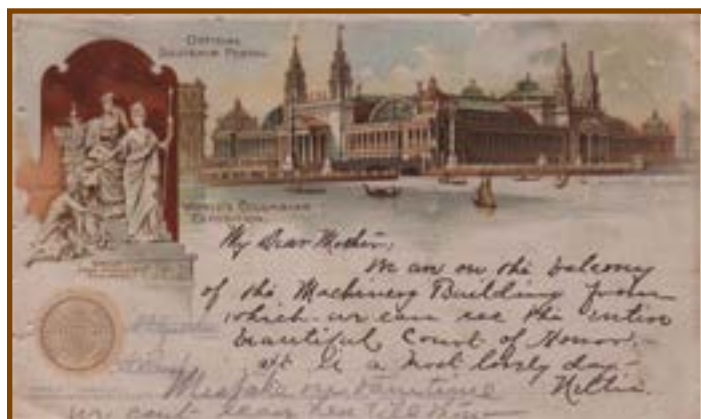 OFFICIAL
SOUVENIR POSTAL
WORLD'S COLUMBIAN
EXPOSITION.
My Dear Mother,
We are on the balcony
of the Machinery Building from
which we can see the entire
beautiful Court of Honor.
It is a most lovely day.
Nellie.
we can't